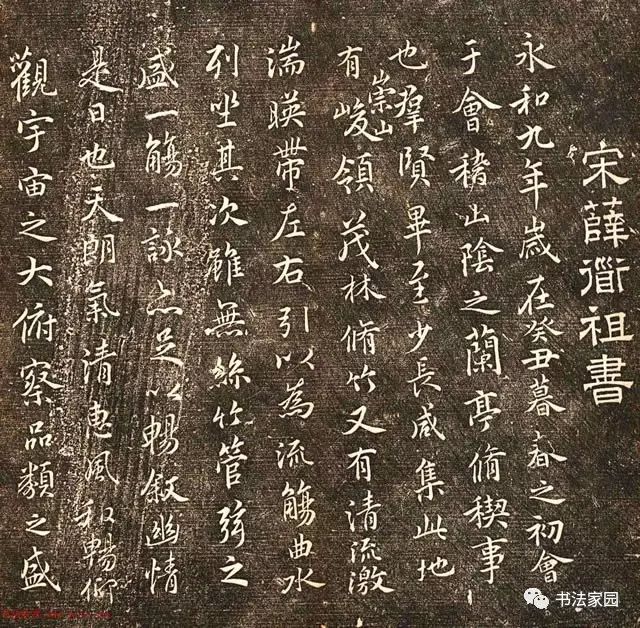 宋薛衟祖書
永和九年歲在癸丑暮春之初會
于會稽山陰之蘭亭脩稧事
也羣賢畢至少長咸集此地
有崇山峻領茂林脩竹又有清流激
湍暎帶左右引以為流觴曲水
列坐其次雖無絲竹管弦之
盛一觴一詠亦足以暢敘幽情
是日也天朗氣清惠風和暢仰
觀宇宙之大俯察品類之盛
书法家园